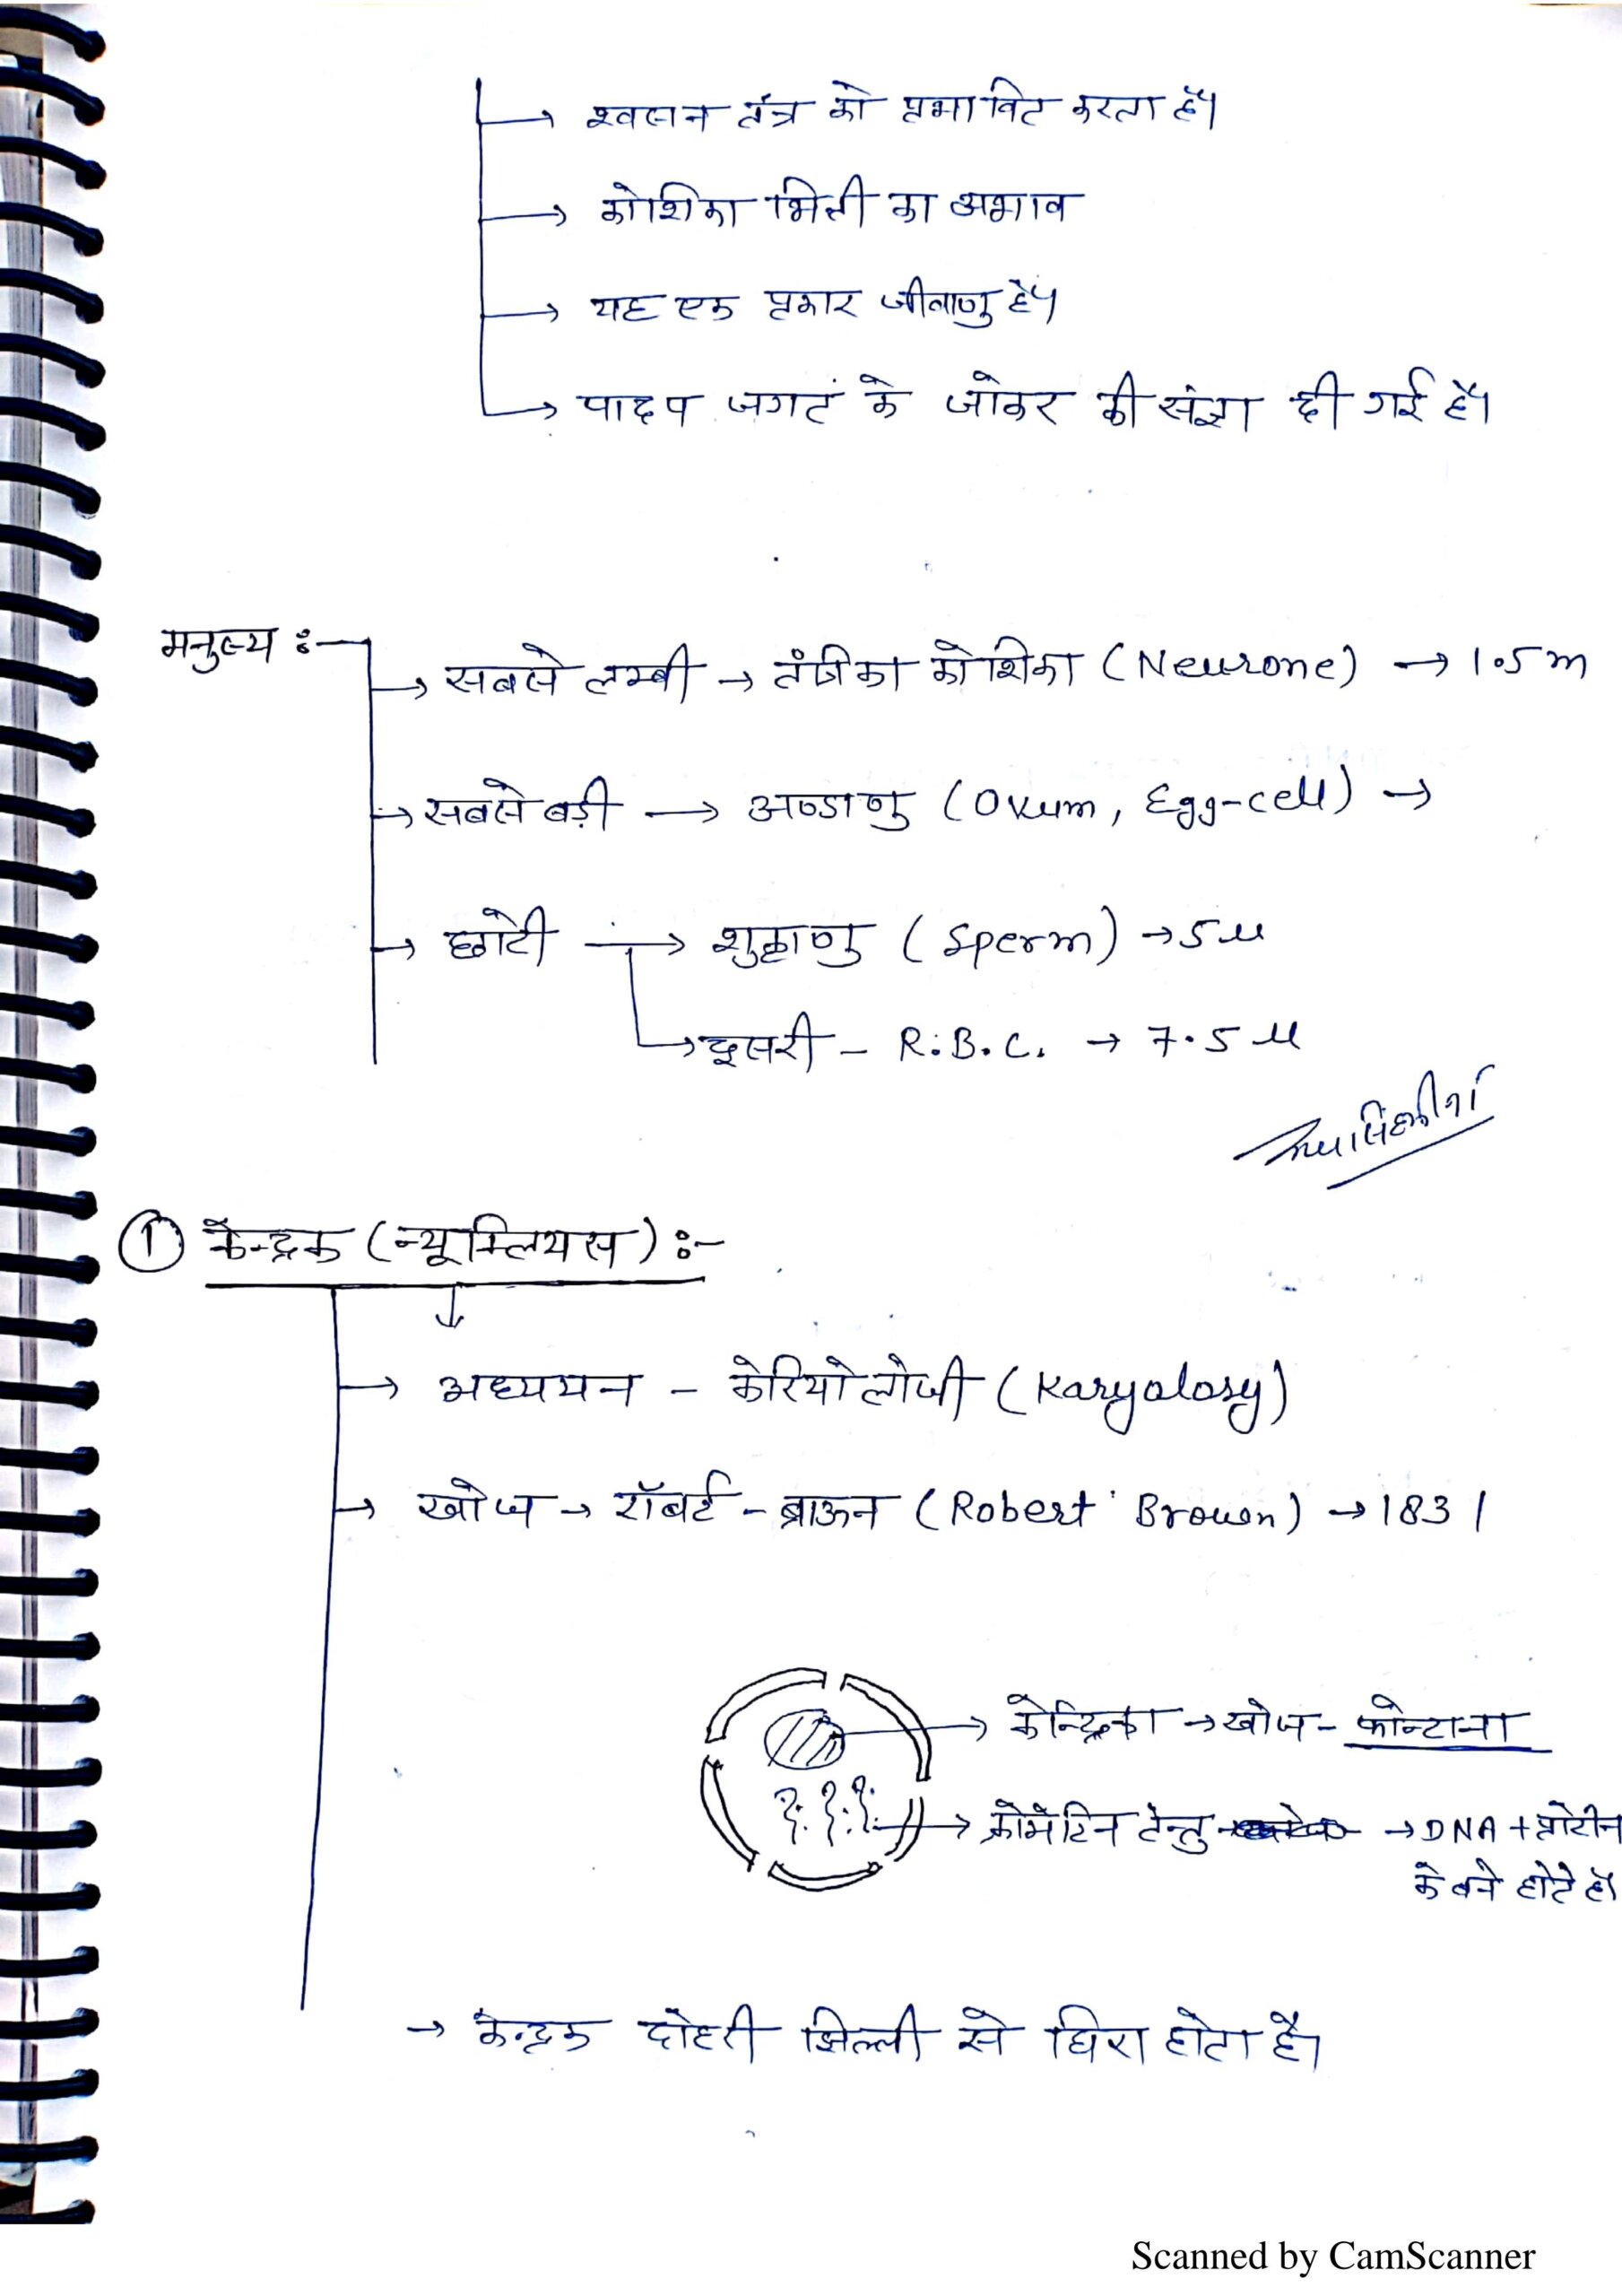 → श्वसन तंत्र को प्रभावित करता है।
→ कोशिका भित्ती का अभाव
→ यह एक प्रकार जीवाणु है।
→ पादप जगत के जोकर की संज्ञा दी गई है।
मनुष्य :-
→ सबसे लम्बी → तंत्रिका कोशिका (Neurone) → 1.5 m
→ सबसे बड़ी → अण्डाणु (Ovum, Egg-cell) →
→ छोटी → शुक्राणु (Sperm) → 5 µ
→ दूसरी - R.B.C. → 7.5 µ
① केन्द्रक (न्यूक्लियस) :-
→ अध्ययन - केरियोलोजी (Karyology)
→ खोज → रॉबर्ट - ब्राऊन (Robert Brown) → 1831
→ केन्द्रिका → खोज - फोन्टाना
→ क्रोमेटिन तन्तु → DNA + प्रोटीन
के बने होते है।
→ केन्द्रक दोहरी झिल्ली से घिरा होता है।
Scanned by CamScanner